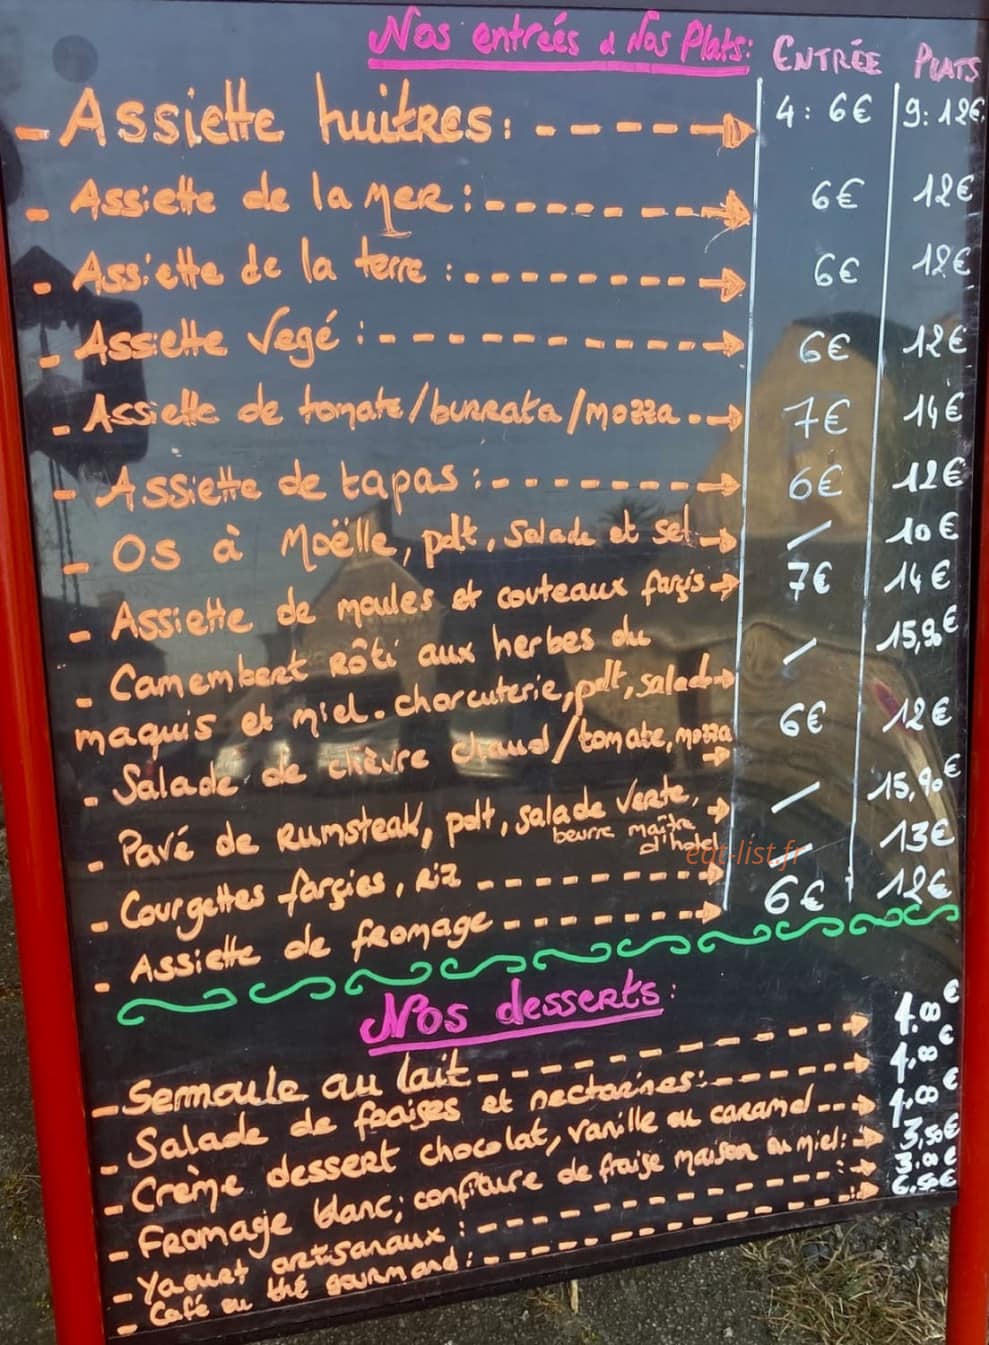 Nos entrées & Nos Plats: ENTRÉE PLATS
- Assiette huitres: 4: 6€ 9: 12€
- Assiette de la mer: 6€ 12€
- Assiette de la terre: 6€ 12€
- Assiette Vegé: 6€ 12€
- Assiette de tomate/burrata/mozza. 7€ 14€
- Assiette de tapas: 6€ 12€
- Os à Moëlle, pdt, salade et sel / 10€
- Assiette de moules et couteaux farçis 7€ 14€
- Camembert Rôti aux herbes du / 15,90€
maquis et miel. charcuterie, pdt, salade
- Salade de chèvre chaud/tomate, mozza 6€ 12€
- Pavé de Rumsteak, pdt, salade verte, / 15,90€
beurre maître
d'hotel
eat-list.fr
- Courgettes farçies, Riz / 13€
- Assiette de fromage 6€ 12€
Nos desserts:
- Semoule au lait 4.00€
- Salade de fraises et nectarines: 4,00€
- Crème dessert chocolat, vanille au caramel 4,00€
- Fromage blanc; confiture de fraise maison au miel: 3,50€
- Yaourt artisanaux: 3.00€
- Café ou thé gourmand: 6.50€